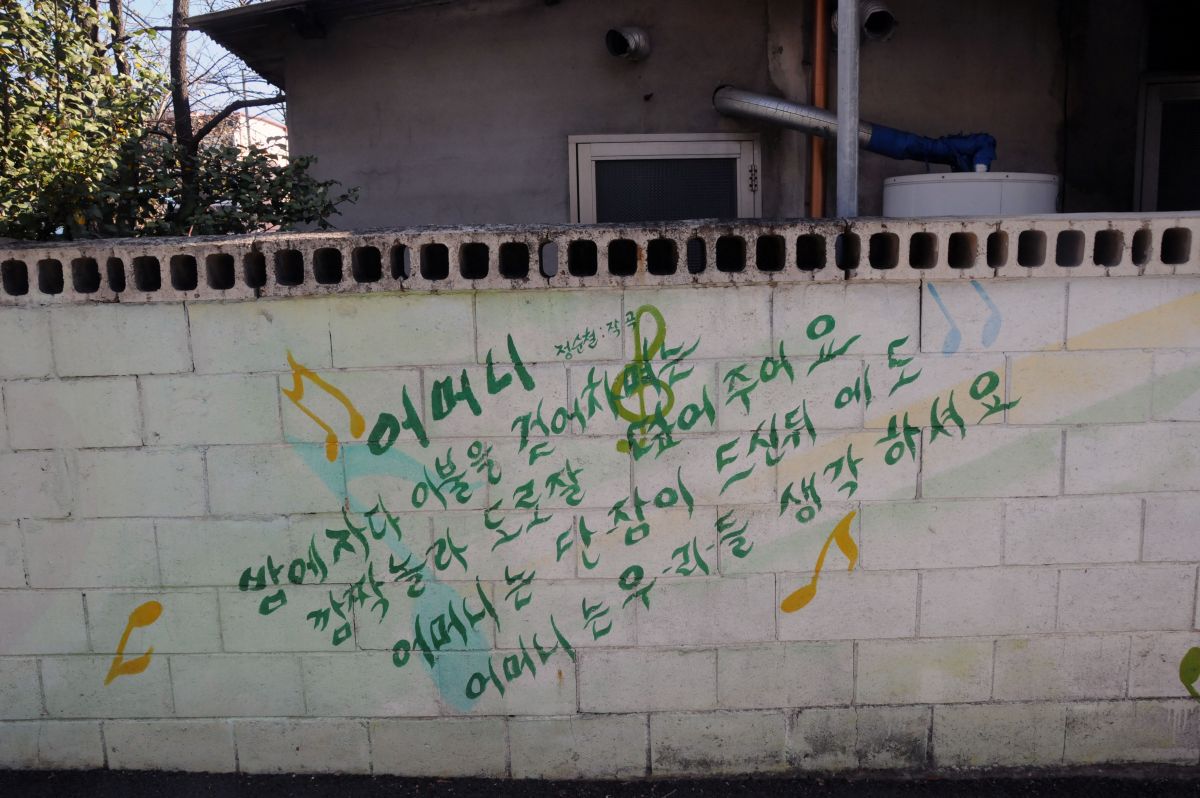 어머니
정순철:작곡
밤에 자다 이불을 걷어차며는
깜짝 놀라 도로잘 덮어 주어요
어머니는 단-잠이 드신뒤에도
어머니는 우-리-들 생각 하셔요